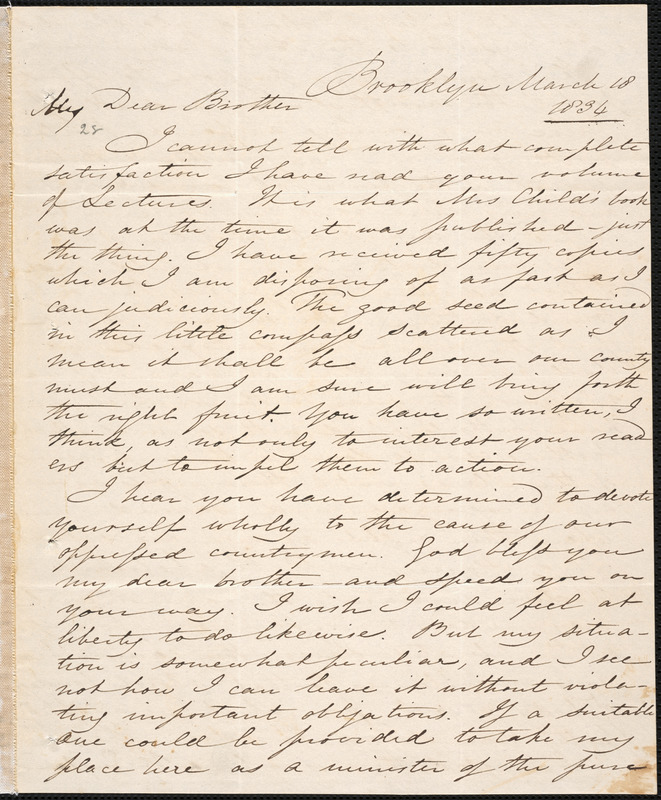 Brooklyn March 18
1834
My Dear Brother
28
I cannot tell with what complete
satisfaction I have read your volume
of Lectures. It is what Mrs Child's book
was at the time it was published – just
the thing. I have received fifty copies
which I am disposing of as fast as I
can judiciously. The good seed contained
in this little compass scattered as I
mean it shall be all over our county
must and I am sure will bring forth
the right fruit. You have so written, I
think, as not only to interest your read
ers but to impel them to action.
I hear you have determined to devote
yourself wholly to the cause of our
oppressed countrymen. God bless you
my dear brother – and speed you on
your way. I wish I could feel at
liberty to do likewise. But my situa-
tion is somewhat peculiar, and I see
not how I can leave it without viola-
ting important obligations. If a suitable
one could be provided to take my
place here as a minister of the pure